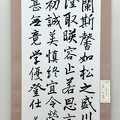 蘭斯馨如松之盛川
澄取暎容止若思言
初誠美慎終宜令榮
甚無竟學優登仕